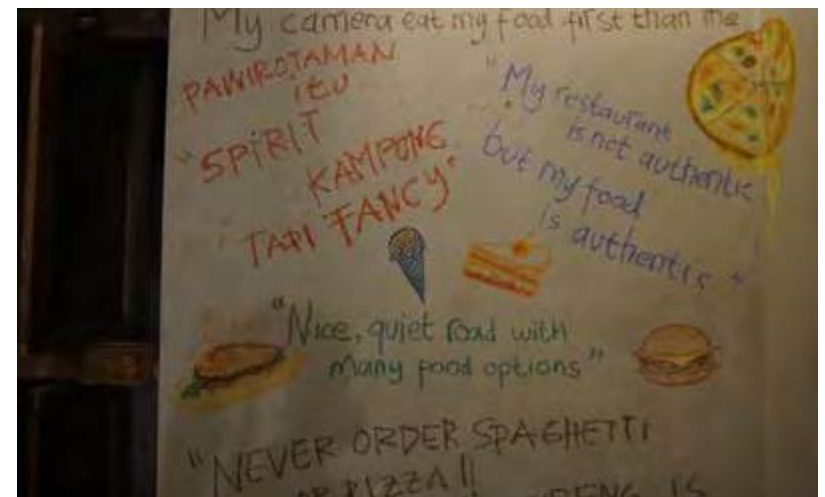 My camera eat my food first than me
PAWIROTAMAN
itu
"SPIRIT
KAMPONG
TAPI FANCY"
"My restaurant
is not authentic
but my food
is authentic"
"Nice, quiet road with
many food options"
"NEVER ORDER SPAGHETTI
OR PIZZA!!
IS